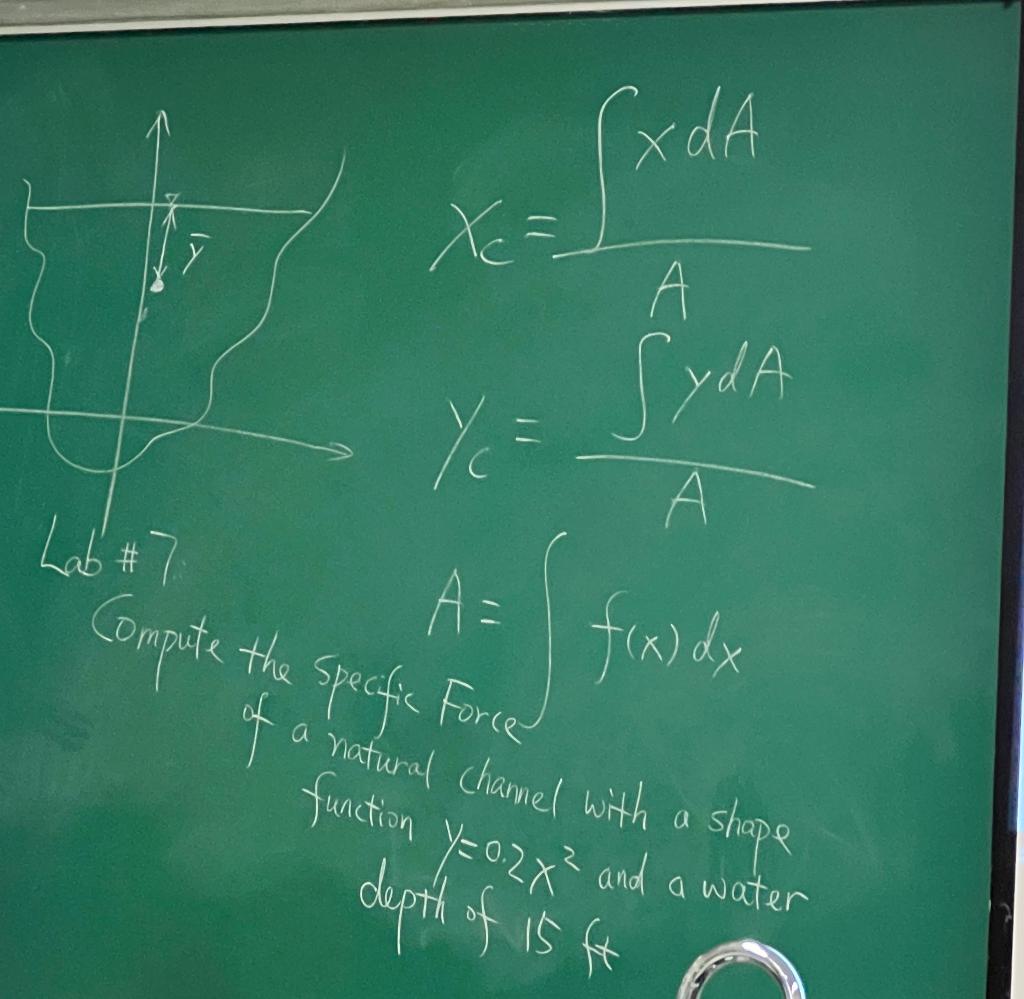 ȳ
Xc = ∫ x dA / A
Yc = ∫ y dA / A
A = ∫ f(x) dx
Lab # 7
Compute the Specific Force
of a natural channel with a shape
function y=0.2x² and a water
depth of 15 ft